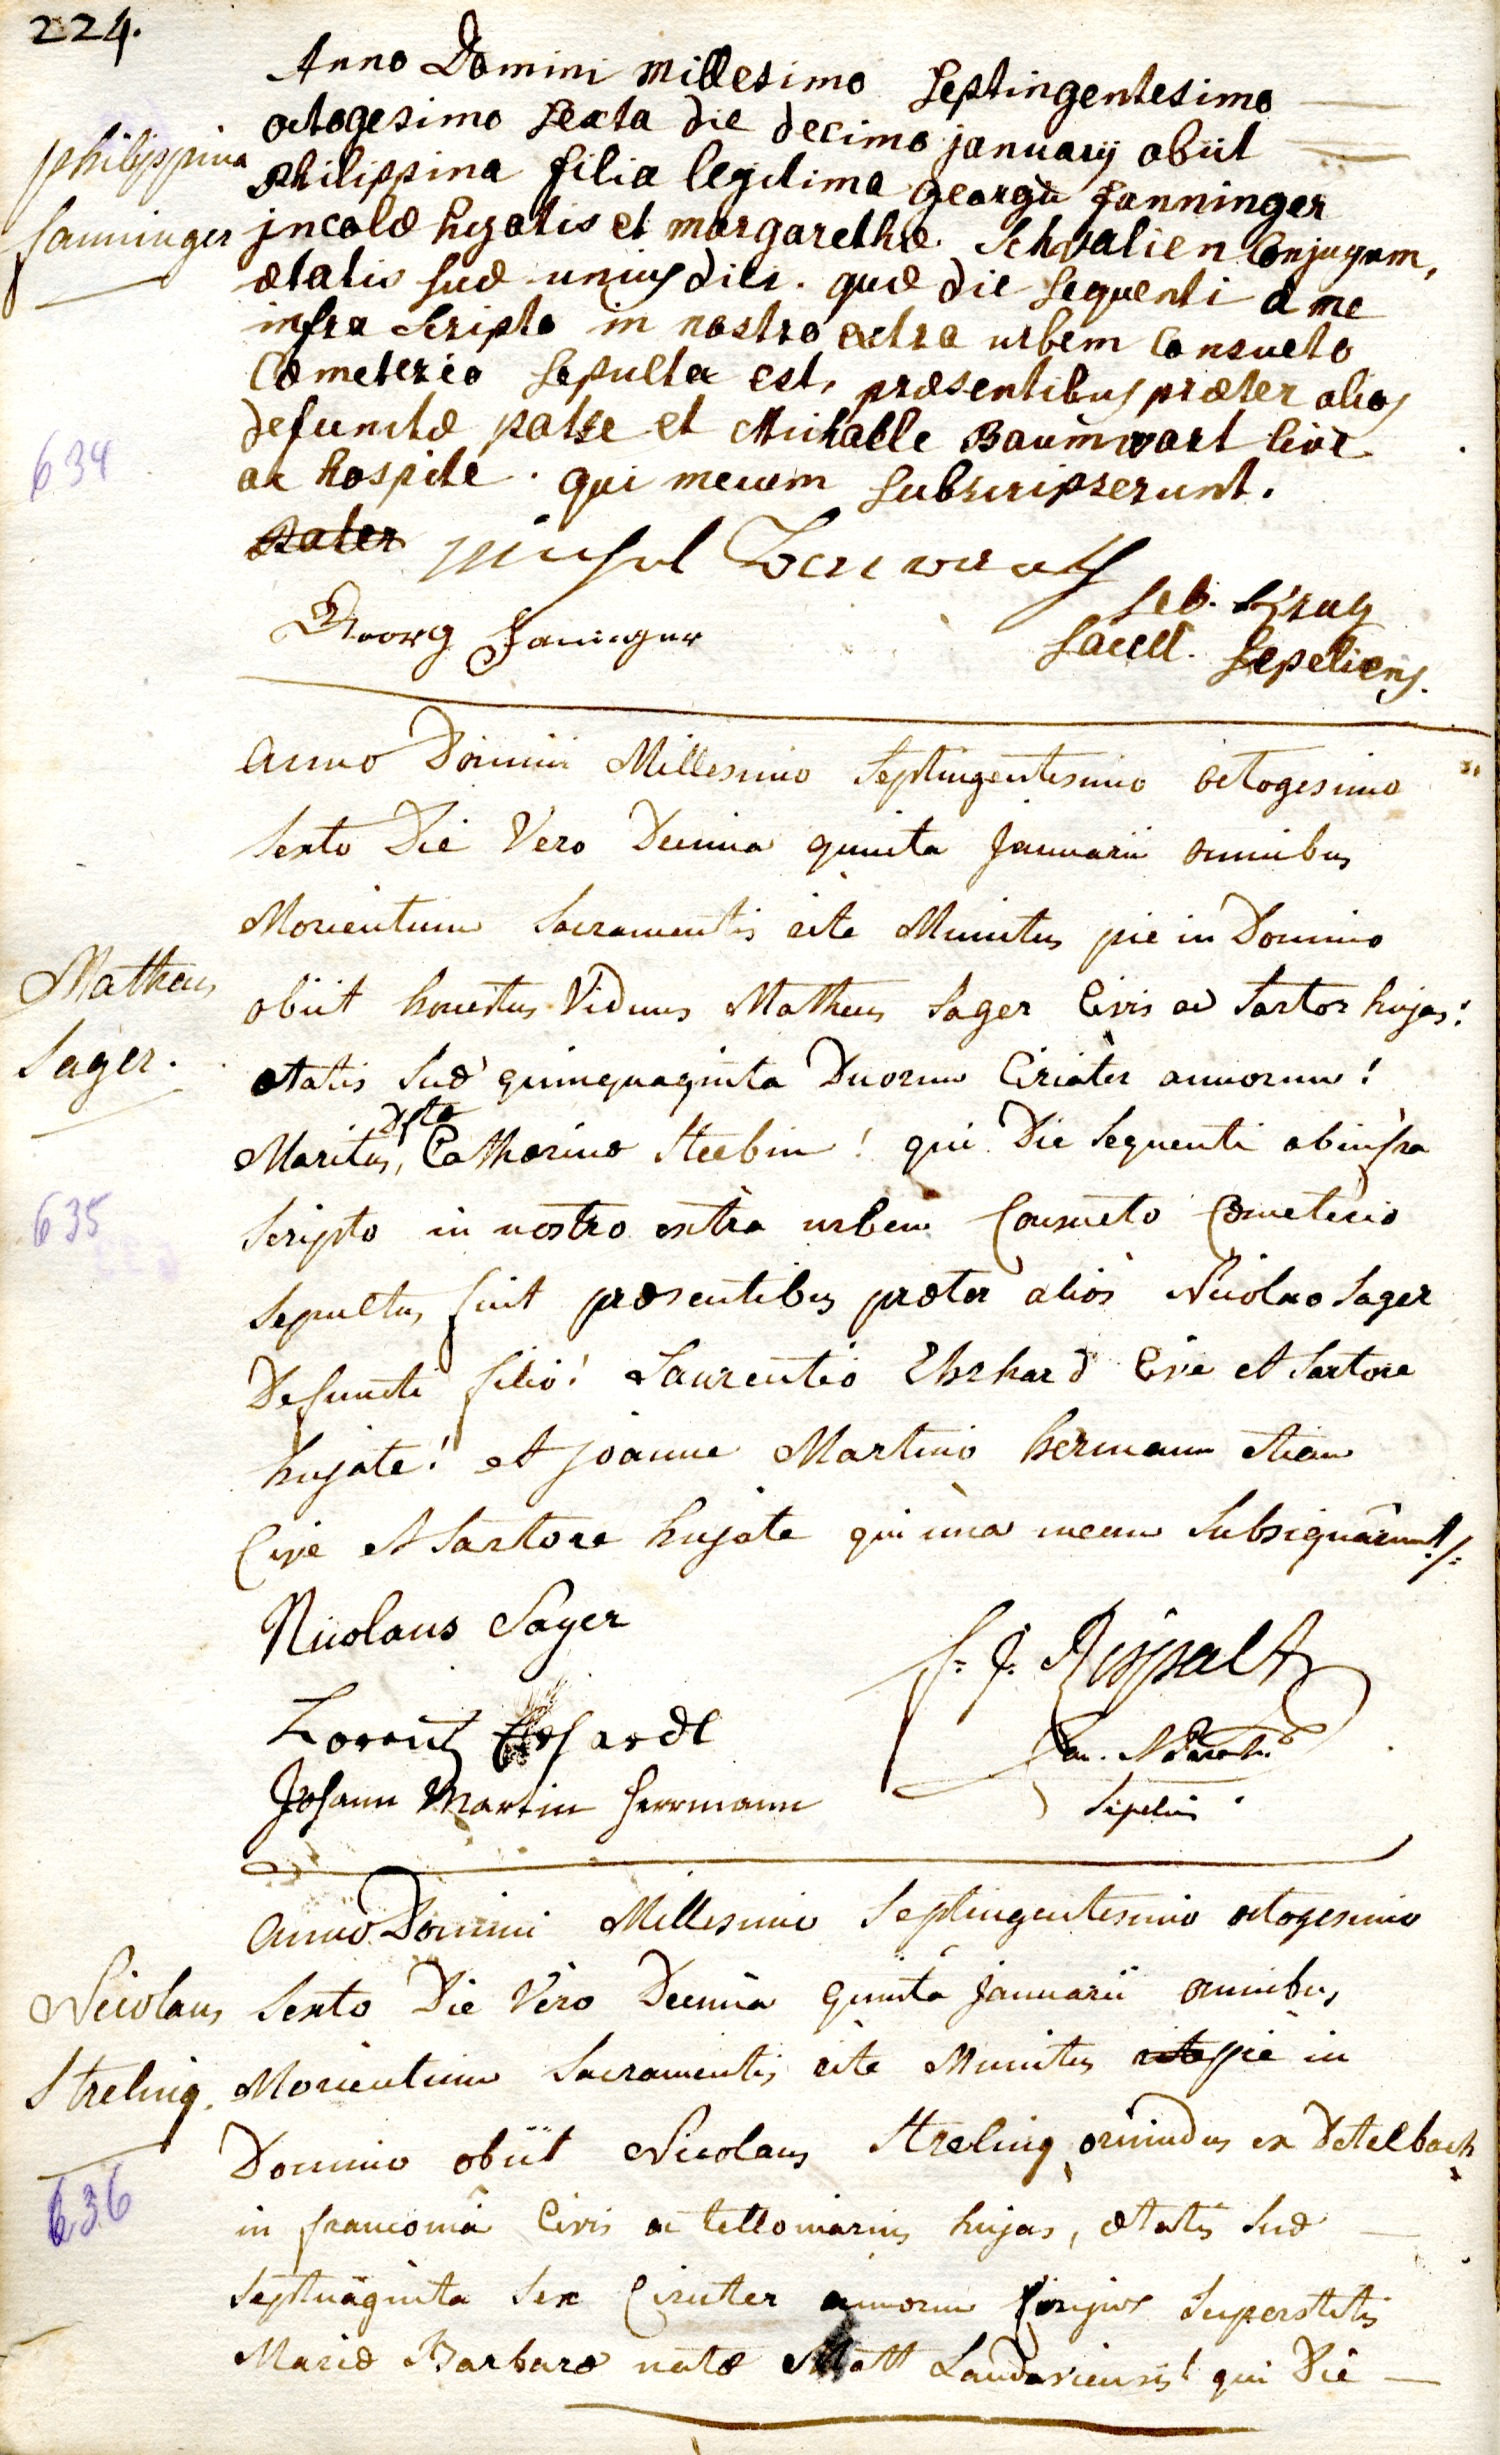 224.
Anno Domini Millesimo Septingentesimo
octogesimo sexta die decimo januarij obiit
Philippina filia legitima georgii fanninger
incolæ hujatis et margarethæ Schvalien Conjugum,
ætatis suæ unius diei. quæ die sequenti a me
infra scripto in nostro extra urbem Consueto
Cœmeterio sepulta est, præsentibus præter alios
defunctæ patre et Michaele Baumwart Cive
ac hospite. qui mecum subscripserunt.
philippina
fanninger
634
Pater
Georg Faninger
Seb. Krug
Sacell. Sepeliens.
Anno Domini Millesimo Septingentesimo octogesimo
Sexto Die Vero Decima quinta Januarii omnibus
Morientium Sacramentis rite Munitus pie in Domino
obiit honestus Viduus Matheus Sager Civis ac Sartor hujas!
ætatis suæ quinquaginta Duorum Circiter annorum!
Maritus, dftæ Catharinæ Steebin! qui Die sequenti ab infra
scripto in nostro extra urbem Consueto Cœmeterio
sepultus fuit præsentibus præter alios Nicolao Sager
Defuncti filio! Laurentio Ehrhard Cive et Sartore
hujate! et joanne Martino hermann etiam
Cive et Sartore hujate qui una mecum Subsignârunt!
Matheus
Sager.
635
Nicolaus Sager
Lorentz Ehrhardt
Johann Martin Herrmann
Sepeliens
Anno Domini Millesimo Septingentesimo octogesimo
Sexto Die Vero Decima quinta januarii omnibus
Morientium Sacramentis rite Munitus rite pie in
Domino obiit Nicolaus Streling oriundus ex Detelbach
in franconiâ Civis ac tellonarius hujas, ætatis suæ
Septuaginta Sex Circiter annorum Conjux Superstitis
Mariæ Barbaræ natæ Matt Landaviensis! qui Die
Nicolaus
Streling.
636